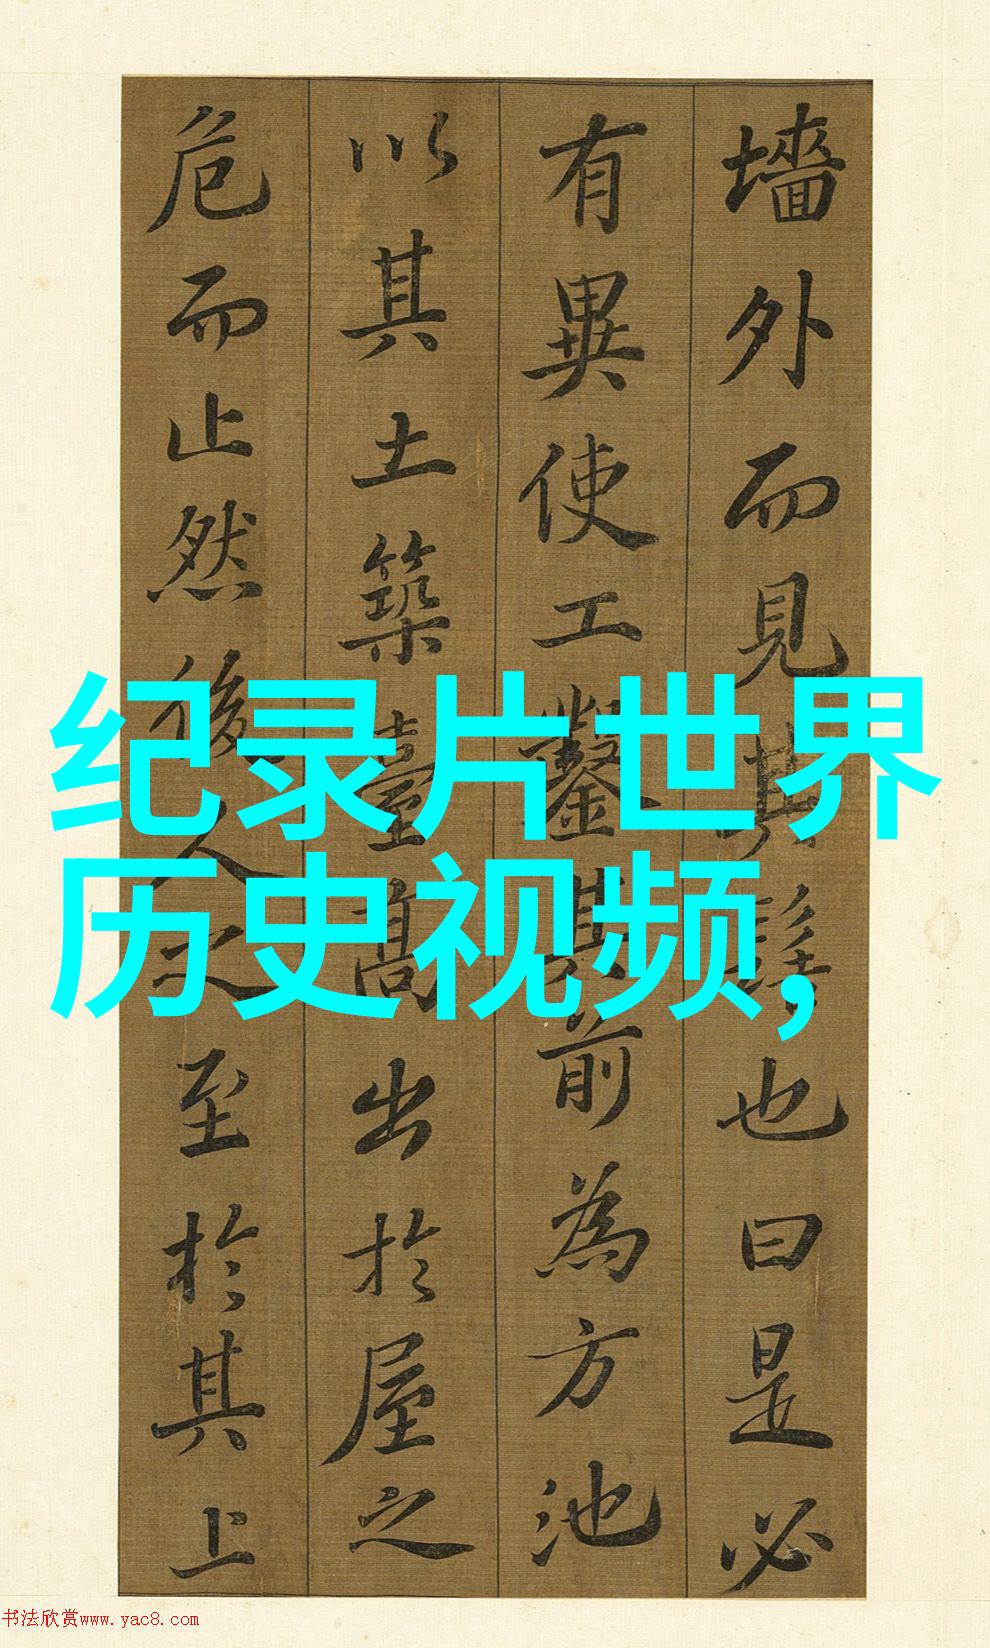 墻外而見其髻也曰是必
有異使工鑿其前為方池
以其土築臺高出於屋之
危而止然後人之至於其上
纪录片世界
历史视频,
书法欣赏www.yac8.com